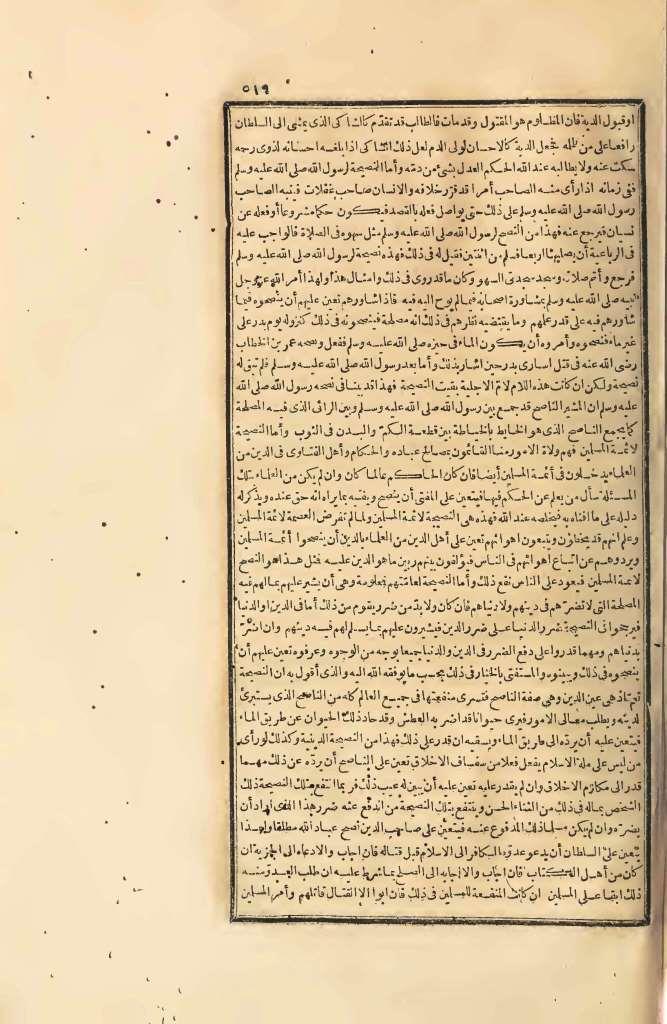 ٥١٩
او قبول الدية فان المظلوم هو المقتول وقد مات فالطالب قد تقدم كالشاكى الذى يمشى الى السلطان
رافعا على من ظلمه فتجعل الدية كالاحسان لولى الدم لعل ذلك الشاكى اذا بلغه احسانه لذوى رحمه
سكت عنه ولا يطالبه عند الله الحكم العدل بشئ من دمه وأما النصيحة لرسول الله صلى الله عليه وسلم
ففى زمانه اذا رأى منه الصاحب أمرا قد قرر خلافه والانسان صاحب غفلات فينبه الصاحب
رسول الله صلى الله عليه وسلم على ذلك حتى يواصل فعله بالقصد فيكون حكما مشروعا أو فعله عن
نسيان فيرجع عنه فهذا من النصح لرسول الله صلى الله عليه وسلم مثل سهوه فى الصلاة فالواجب عليه
فى الرباعية أن يصليها أربعا فسلم من اثنتين فقيل له فى ذلك فهذه نصيحة لرسول الله صلى الله عليه وسلم
فرجع وأتم صلاته وسجد سجدتى السهو وكان ما قد روى فى ذلك وامثال هذا ولهذا أمر الله عز وجل
نبيه صلى الله عليه وسلم بمشاورة اصحابه فيما لم يوح اليه فيه فاذا شاورهم تعين عليهم أن ينصحوه فيما
شاورهم فيه على قدر علمهم وما يقتضيه نظرهم فى ذلك انه مصلحة فينصحونه فى ذلك كنزوله يوم بدر على
غير ماء فنصحوه وأمروه أن يكون الماء فى حيزه صلى الله عليه وسلم ففعل ونصحه عمر بن الخطاب
رضى الله عنه فى قتل اسارى بدر حين اشار بذلك وأما بعد رسول الله صلى الله عليه وسلم فلم تبق له
نصيحة ولكن ان كانت هذه اللام لام الاجلية بقيت النصيحة فهذا قد بينا فى نصحه رسول الله صلى الله
عليه وسلم ان المشير الناصح قد جمع بين رسول الله صلى الله عليه وسلم وبين الرائى الذى فيه المصلحة
كما يجمع الناصح الذى هو الخايط بالخياطة بين قطعة الكم والبدن فى الثوب وأما النصيحة
لائمة المسلمين فهم ولاة الامور منا القائمون بمصالح عباده والحكام وأهل الفتاوى فى الدين من
العلماء يدخلون فى أئمة المسلمين أيضا فان كان الحاكم عالما كان وان لم يكن من العلماء بتلك
المسئلة سأل من يعلم عن الحكم فيها فيتعين على المفتى أن ينصح ويفتيه بما يراه انه حق عنده ويذكر له
دليله على ما افتاه به فيخلصه عند الله فهذه هى النصيحة لائمة المسلمين ولما لم تفرض العصمة لائمة المسلمين
وعلم انهم قد يخطؤن ويتبعون اهوائهم تعين على أهل الدين من العلماء بالدين أن ينصحوا أئمة المسلمين
ويردوهم عن اتباع اهوائهم فى الناس فيؤلفون بينهم وبين ما هو الدين عليه فمثل هذا هو النصح
لائمة المسلمين فيعود على الناس نفع ذلك وأما النصيحة لعامتهم فمعلومة وهى أن يشير عليهم بما لهم فيه
المصلحة التى لا تضرهم فى دينهم ولا دنياهم فان كان ولا بد من ضرر يقوم من ذلك أما فى الدين او الدنيا
فيرجحوا فى النصيحة ضرر الدنيا على ضرر الدين فيشيرون عليهم بما يسلم لهم فيه دينهم وان اضرّ
بدنياهم ومهما قدروا على دفع الضرر فى الدين والدنيا جميعا بوجه من الوجوه وعرفوه تعين عليهم أن
ينصحوه فى ذلك ويبينوه والمستفتى بالخيار فى ذلك بحسب ما يوفقه الله اليه والذى أقول به ان النصيحة
تعم اذ هى عين الدين وهى صفة الناصح فتسرى منفعتها فى جميع العالم كله من الناصح الذى يستبرئ
لدينه ويطلب معالى الامور فيرى حيوانا قد اضر به العطش وقد حاد ذلك الحيوان عن طريق الماء
فيتعين عليه أن يردّه الى طريق الماء ويسقيه ان قدر على ذلك فهذا من النصيحة الدينية وكذلك لو رأى
من ليس على ملة الاسلام يفعل فعلا من سفساف الاخلاق تعين على الناصح أن يردّه عن ذلك مهما
قدر الى مكارم الاخلاق وان لم يقدر عليه تعين عليه أن يبين له عيب ذلك فربما انتفع بتلك النصيحة ذلك
الشخص بما له فى ذلك من الثناء الحسن وينتفع بتلك النصيحة من اندفع عنه ضرر هذا الذى أراد أن
يضرّه وان لم يكن مسلما ذلك المدفوع عنه فيتعين على صاحب الدين أنصح عباد الله مطلقا ولهذا
يتعين على السلطان أن يدعو عدوه الكافر الى الاسلام قبل قتاله فان اجاب والا دعاه الى الجزية ان
كان من أهل الكتاب فان اجاب والا اجابه الى الصلح بما شرط عليه ان طلب العدو منه
ذلك ابقاء على المسلمين ان كانت المنفعة للمسلمين فى ذلك فان ابوا الا القتال قاتلهم وأمر المسلمين